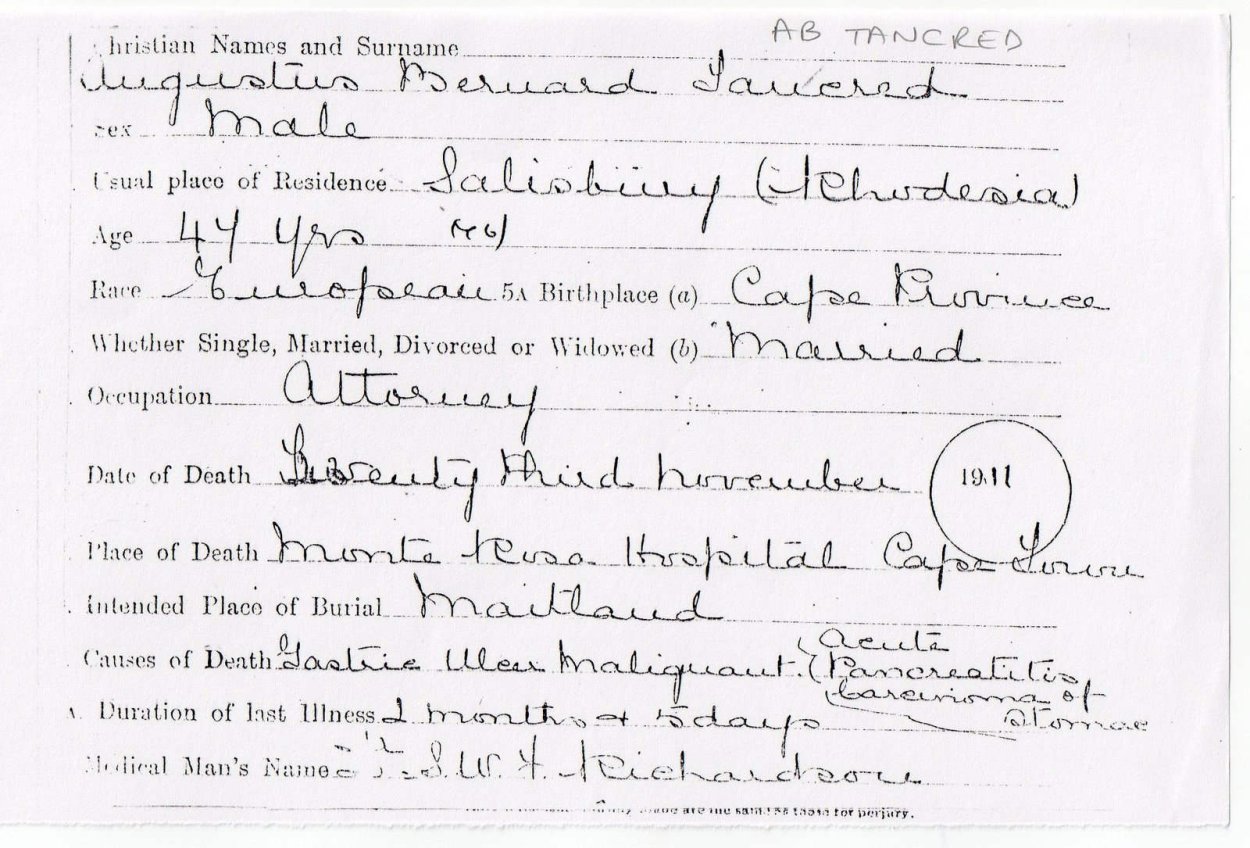 AB TANCRED
Christian Names and Surname
Augustus Bernard Tancred
Sex Male
Usual place of Residence Salisbury (Rhodesia)
Age 47 yrs
Race European 5A Birthplace (a) Cape Province
Whether Single, Married, Divorced or Widowed (b) Married
Occupation Attorney
Date of Death Twenty third November 1911
Place of Death Monte Rosa Hospital Cape Town
Intended Place of Burial Maitland
Causes of Death Gastric Ulcer Malignant. (Acute
Pancreatitis
Carcinoma of
Stomac
Duration of last Illness 2 months & 5 days
Medical Man's Name S. W. F. Richardson
are the same as those for perjury.